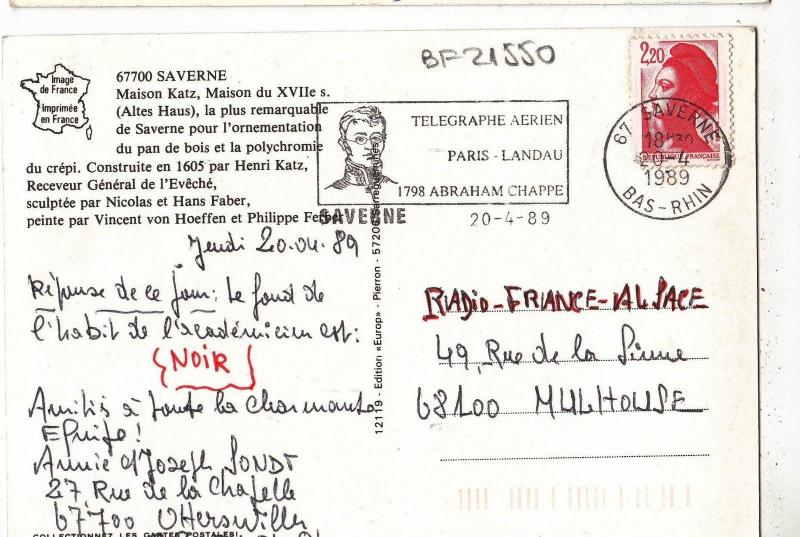 BF 21550
Image
de France
Imprimée
en France
67700 SAVERNE
Maison Katz, Maison du XVIIe s.
(Altes Haus), la plus remarquable
de Saverne pour l'ornementation
du pan de bois et la polychromie
du crépi. Construite en 1605 par Henri Katz,
Receveur Général de l'Evêché,
sculptée par Nicolas et Hans Faber,
peinte par Vincent von Hoeffen et Philippe Ferber
TELEGRAPHE AERIEN
PARIS - LANDAU
1798 ABRAHAM CHAPPE
SAVERNE
20-4-89
2,20
REPUBLIQUE FRANÇAISE
67 SAVERNE
18H30
20-4
1989
BAS-RHIN
Jeudi 20.04.89
Réponse de ce jour: Le fond de
l'habit de l'académicien est:
NOIR
Amitiés à toute la charmante
Equipe!
Annie et Joseph
27 Rue de la Chapelle
67700 Otterswiller
COLLECTIONNEZ LES CARTES POSTALES!
12119 - Edition «Europ» - Pierron - 57206 Sarreguemines
RADIO-FRANCE-ALSACE
49, Rue de la Sinne
68100 MULHOUSE